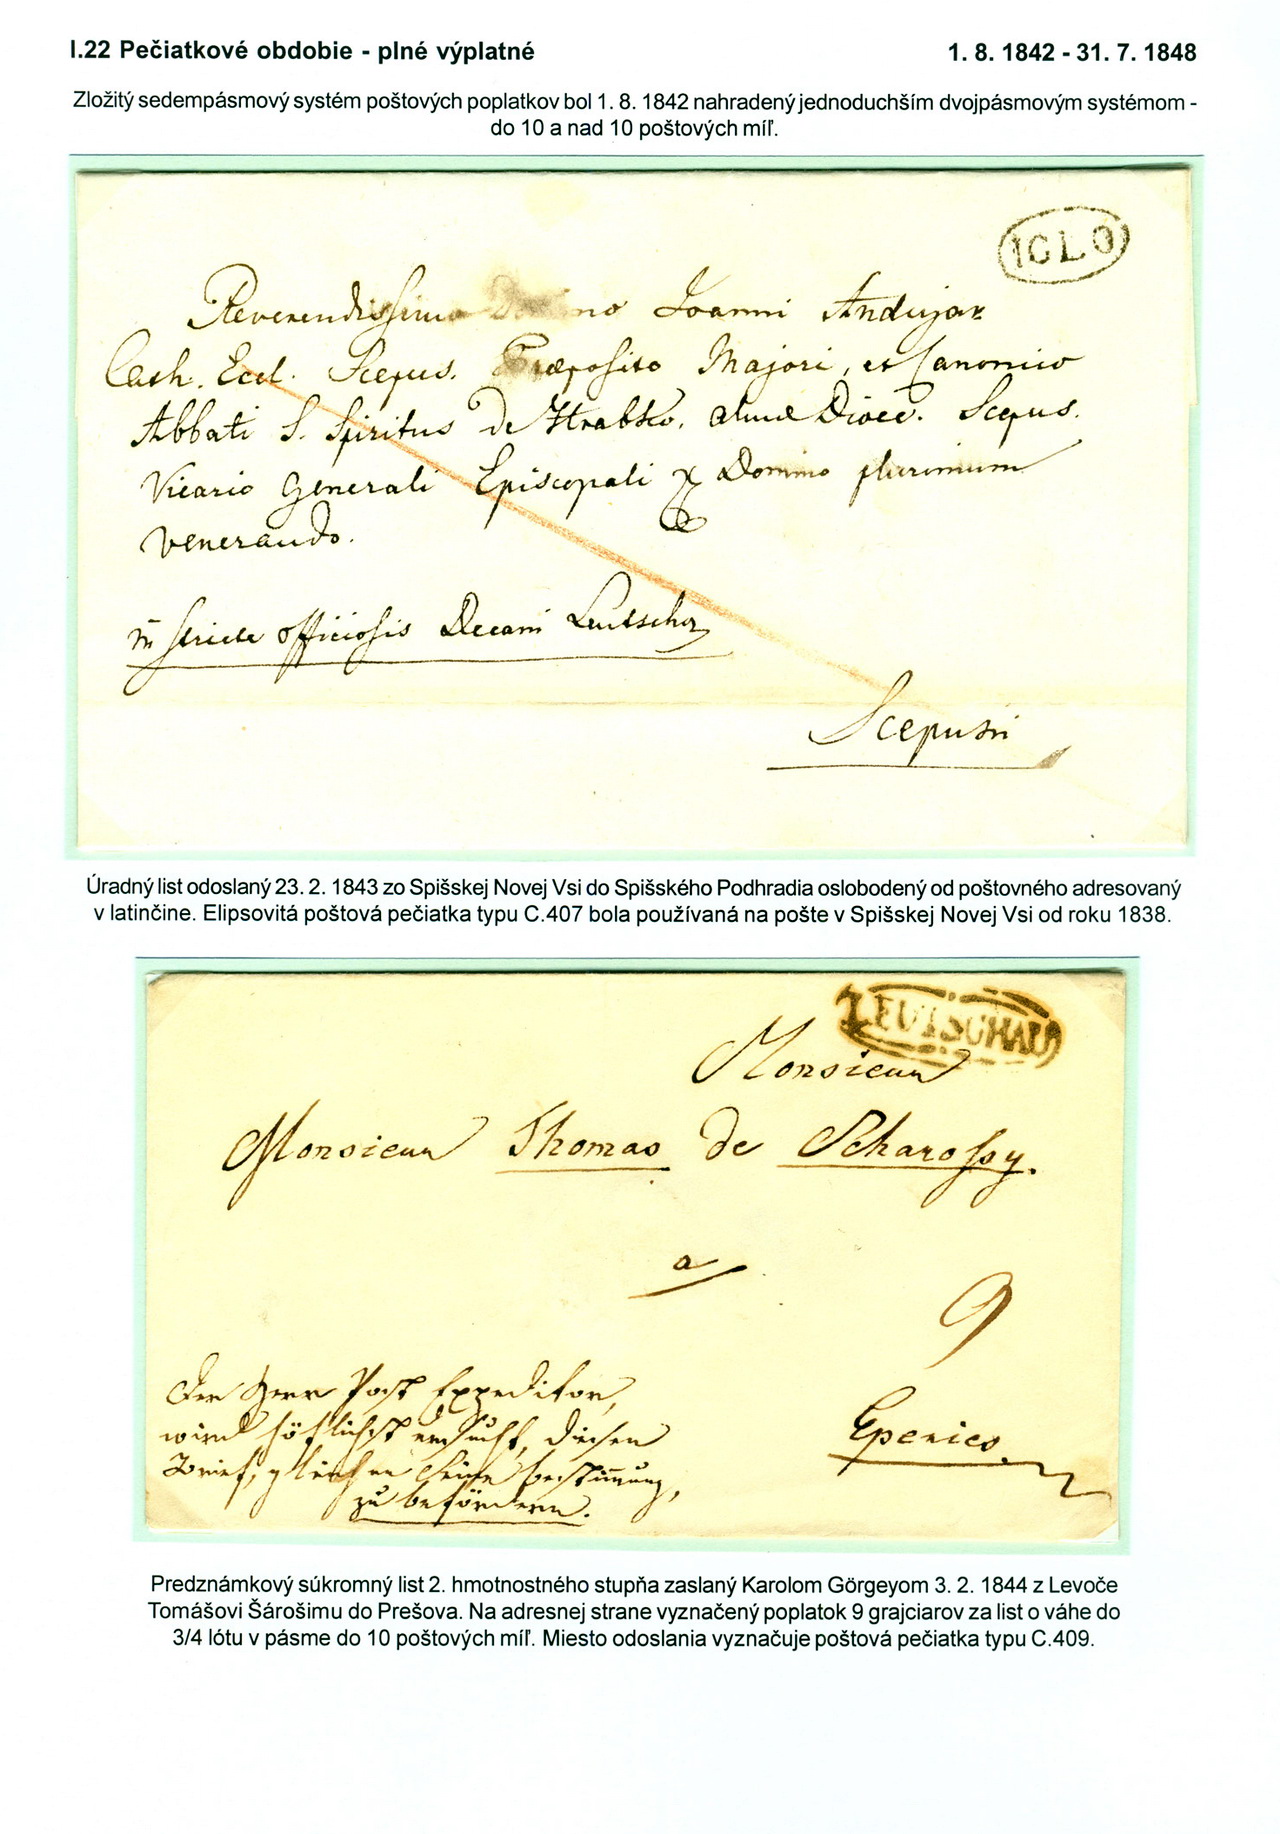 I.22 Pečiatkové obdobie - plné výplatné 1. 8. 1842 - 31. 7. 1848
Zložitý sedempásmový systém poštových poplatkov bol 1. 8. 1842 nahradený jednoduchším dvojpásmovým systémom -
do 10 a nad 10 poštových míľ.
IGLO
Reverendissimo Domino Joanni Andujar
Cath. Eccl. Scepus. Præposito Majori, et Canonico
Abbati S. Spiritus de Hrabko, almæ Diœc. Scepus.
Vicario Generali Episcopali Domino plurimum
venerando.
Decani Leutschov
Scepusii
Úradný list odoslaný 23. 2. 1843 zo Spišskej Novej Vsi do Spišského Podhradia oslobodený od poštovného adresovaný
v latinčine. Elipsovitá poštová pečiatka typu C.407 bola používaná na pošte v Spišskej Novej Vsi od roku 1838.
LEUTSCHAU
Monsieur
Monsieur Thomas de Scharossy.
a
9
Der Herr Post Expeditor,
wird höflichst ersucht, diesen
Brief, gleich an seine Bestimmung,
zu befördern.
Eperies
Predznámkový súkromný list 2. hmotnostného stupňa zaslaný Karolom Görgeyom 3. 2. 1844 z Levoče
Tomášovi Šárošimu do Prešova. Na adresnej strane vyznačený poplatok 9 grajciarov za list o váhe do
3/4 lótu v pásme do 10 poštových míľ. Miesto odoslania vyznačuje poštová pečiatka typu C.409.